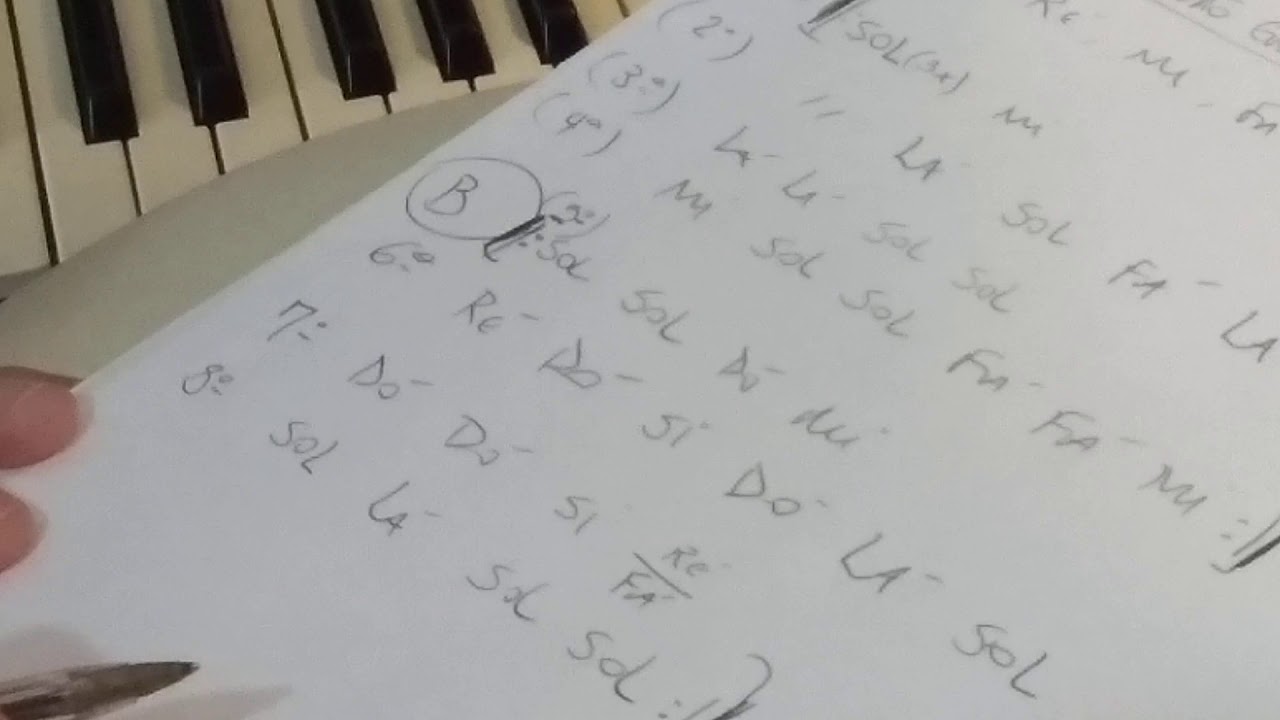 Re- Mi - FA
SOL(3x) Mi
(2º) " LA SOL FA - LA
(3º) LA- LA- SOL SOL
(4º) Mi SOL SOL FA- FA- Mi :||
B (5º) ||: SOL SOL Do-
6º Re- Do- Si Do- LA- SOL
7º Do- Do- Si Re-/FA-
8º SOL LA- SOL SOL :||